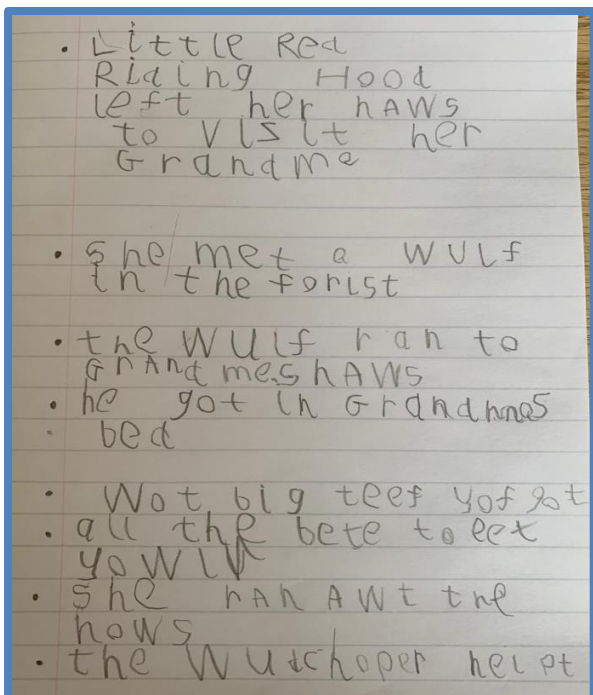 • Little Red
Riding Hood
left her hAWs
to visit her
Grandme
• She met a WULf
in the forist
• the WULf ran to
GrAndmes hAWS
• he got in Grandmas
bed
• Wot big teef yof got
• all the bete to eet
yoWIV
• She rAn AWt the
hows
• the Wudchoper helpt